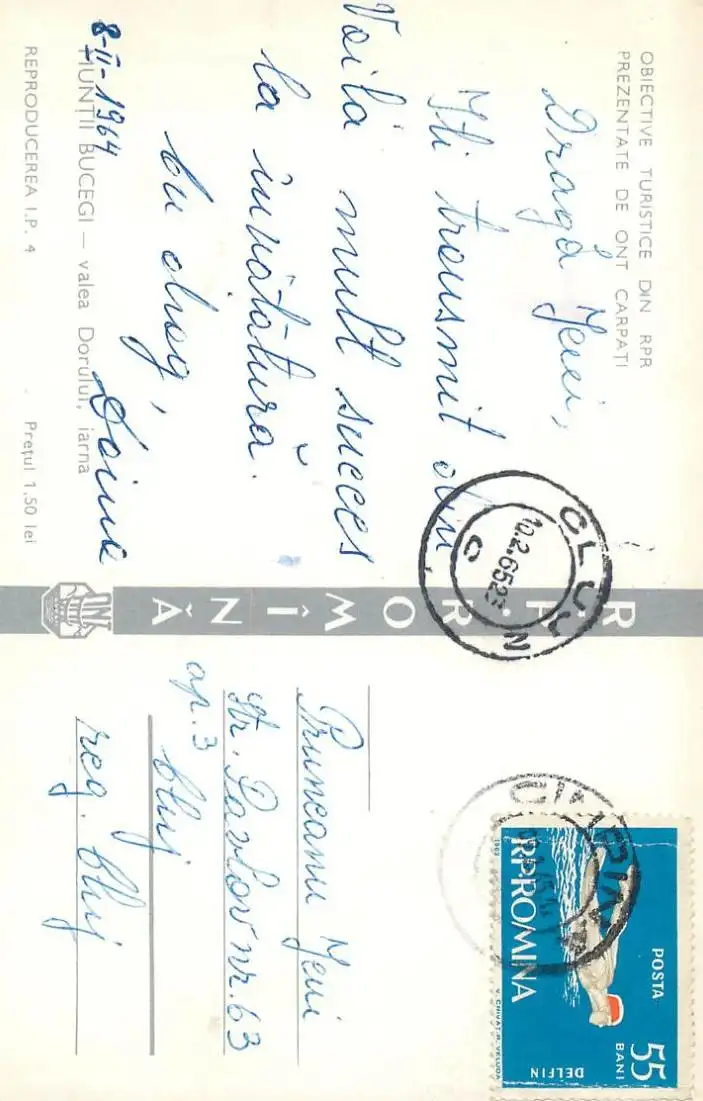 OBIECTIVE TURISTICE DIN RPR
PREZENTATE DE ONT CARPAȚI
Dragă Jeni,
Iti transmit din
Voila mult succes
la învătătură.
Cu drag,
Doina
8-II-1964
MUNȚII BUCEGI — valea Dorului, iarna
REPRODUCEREA I.P. 4
Prețul 1,50 lei
R.P. ROMÎNĂ
ONT
CLUJ
10.2.65 23
C
N
Pruneanu Jeni
str. Pavlov nr. 63
ap. 3
Cluj
reg. Cluj
CÎMPINA
POSTA
55
BANI
R.P.ROMINA
DELFIN
1963
V. CHIVAT. R. VELUDA